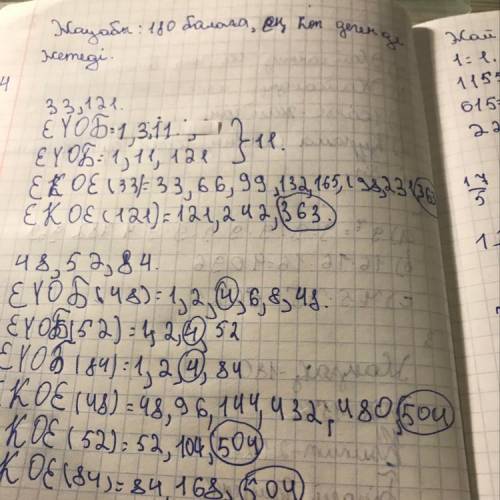 Жауабы: 180 балаға, ең көп дегенде
жетеді.
4
33,121.
ЕҮОБ=1,3,11
ЕҮОБ=1,11,121 } 11.
ЕКОЕ(33)=33,66,99,132,165,198,231,363
ЕКОЕ(121)=121,242,363.
48,52,84.
ЕҮОБ(48)=1,2,4,6,8,48.
ЕҮОБ(52)=1,2,4,52
ЕҮОБ(84)=1,2,4,84
ЕКОЕ(48)=48,96,144,432,480,504
КОЕ(52)=52,104,504
КОЕ(84)=84,168,504
Жай
1=1.
1155
615=
22
17
5
1